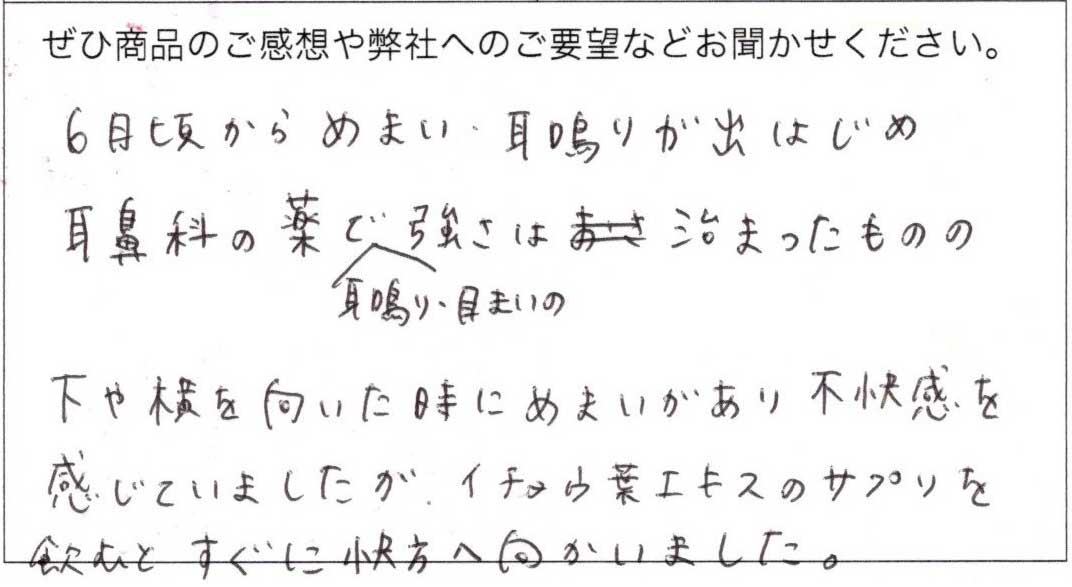 ぜひ商品のご感想や弊社へのご要望などお聞かせください。
6月頃からめまい・耳鳴りが出はじめ
耳鼻科の薬で強さは治まったものの
耳鳴り・目まいの
下や横を向いた時にめまいがあり不快感を
感じていましたが、イチョウ葉エキスのサプリを
飲むとすぐに快方へ向かいました。